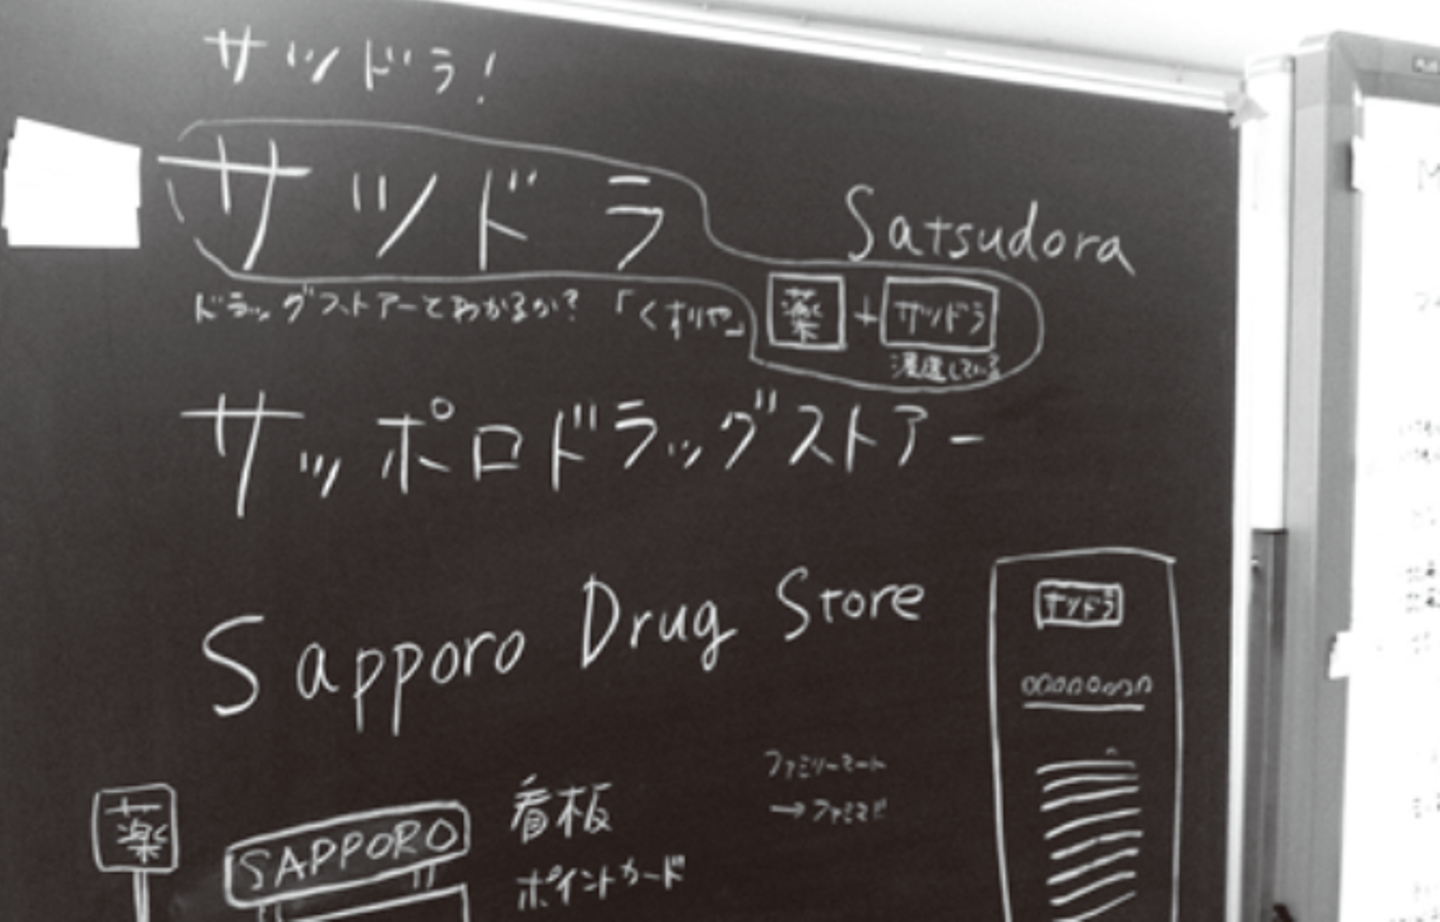 サツドラ!
サツドラ
Satsudora
ドラッグストアーとわかるか? 「くすりや」
薬 + サツドラ
浸透している
サッポロドラッグストアー
Sapporo Drug Store
サツドラ
薬
SAPPORO
看板
ポイントカード
ファミリーマート